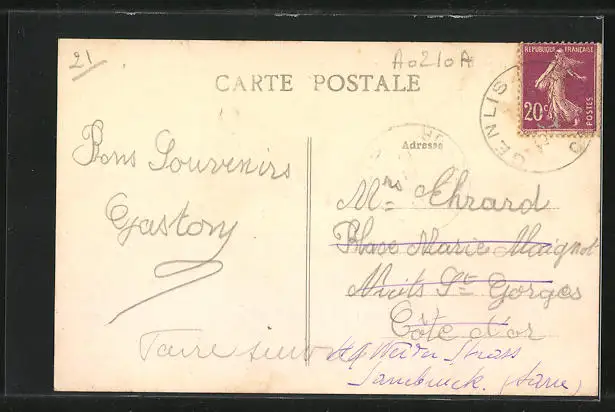 21
A0210A
CARTE POSTALE
RÉPUBLIQUE FRANÇAISE
20c
POSTES
GENLIS
Adresse
Bons Souvenirs
Gaston
Mrs Ehrard
Place Marie Maignot
Nuits St Gorges
Côte d'or
Faire suivre
Strass
(Sarre)